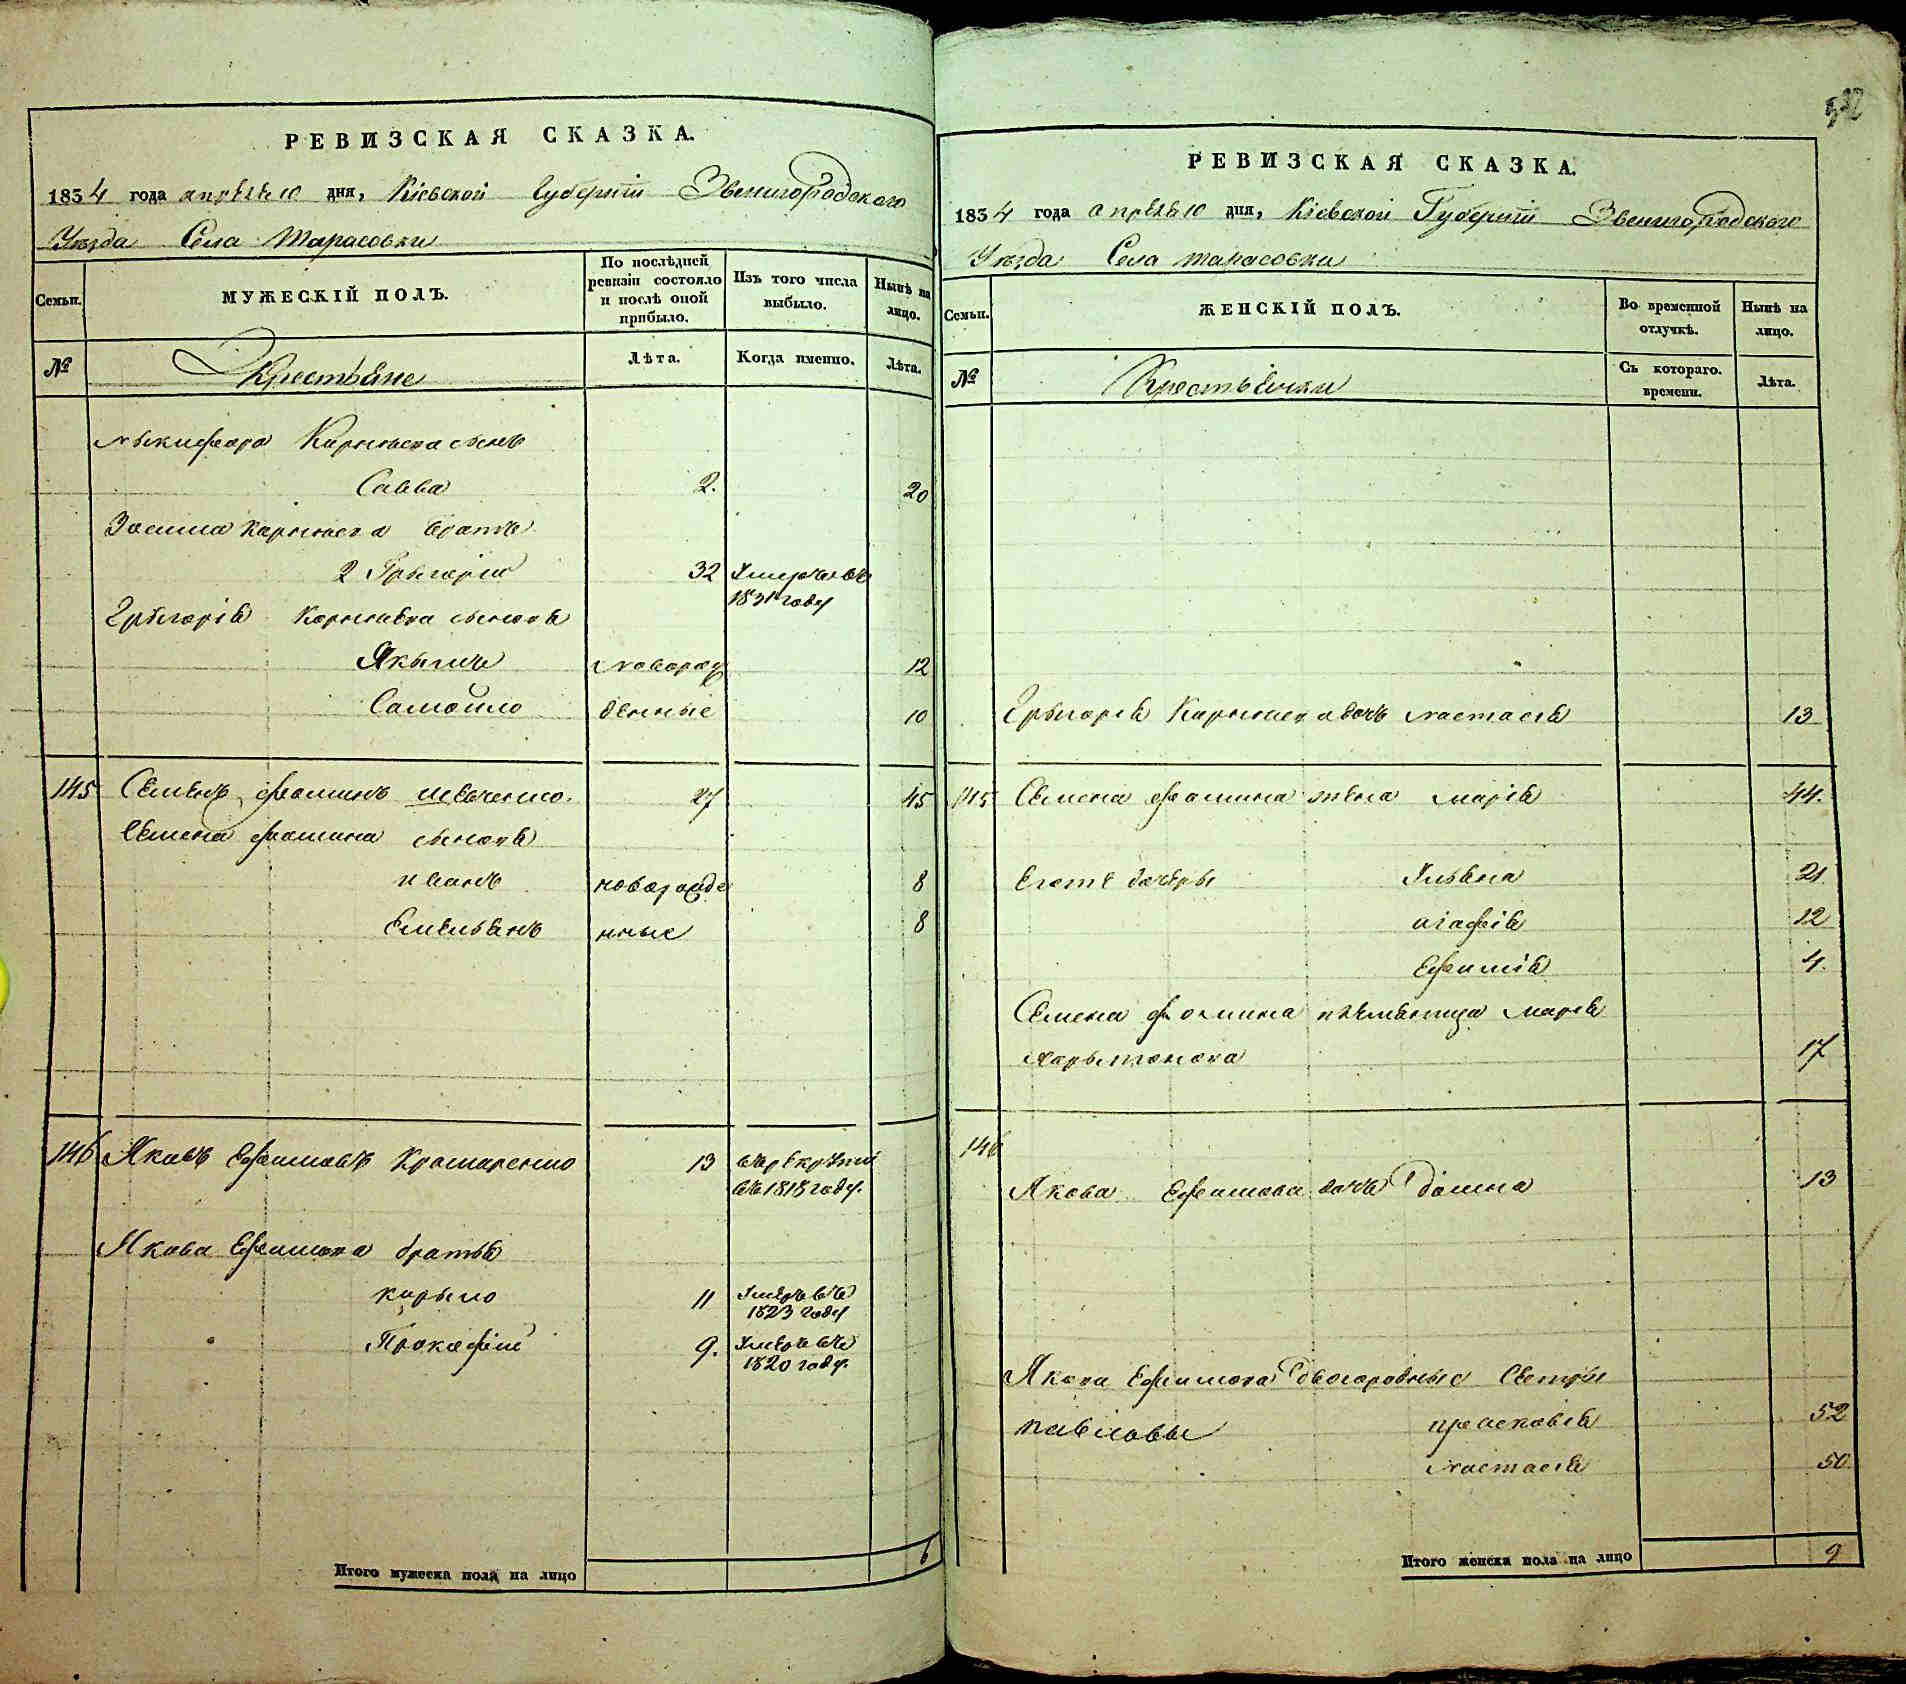 РЕВИЗСКАЯ СКАЗКА.
1834 года апреля 10 дня, Кіевской Губерніи Звенигородского
Уезда Села Тарасовки
Семьи.
МУЖЕСКІЙ ПОЛЪ.
По послѣдней ревизіи состояло и послѣ оной прибыло.
Изъ того числа выбыло.
Нынѣ на лицо.
№
Крестьяне
Лѣта.
Когда именно.
Лѣта.
Мыкифора Карниева сынъ
Савва 2. 20
Зосима Карниева братъ
2 Грыгорій 32 Умеръ въ
1831 году
Грыгорія Корниева сыновя
Якымъ новорож 12
Самойло денные 10
145 Семенъ Фоминъ Шевченко. 27 45
Семена Фомина сыновя
иванъ новорожде 8
Емельянъ нные 8
146 Яковъ Ефимовъ Крамаренко 13 въ рекруты
въ 1818 году.
Якова Ефимова братья
кирыло 11 Умеръ въ
1823 году
Прокофій 9. Умеръ въ
1820 году.
Итого мужеска пола на лицо 6
532
РЕВИЗСКАЯ СКАЗКА.
1834 года апреля 10 дня, Кіевской Губерніи Звенигородского
Уезда Села тарасовки
Семьи.
ЖЕНСКІЙ ПОЛЪ.
Во временной отлучкѣ.
Нынѣ на лицо.
№
Крестьянки
Съ котораго. времени.
Лѣта.
Грыгорія Карниева дочь Настасія 13
145 Семена Фомина жена марія 44.
Егоже дочеры Ульяна 21
агафія 12
Ефимія 4.
Семена Фомина племяница Марія
Харытонова 17
146
Якова Ефимова дочь домна 13
Якова Ефимова двоюродные Сестры
павловы прасковія 52
Настасія 50
Итого женска пола на лицо 9